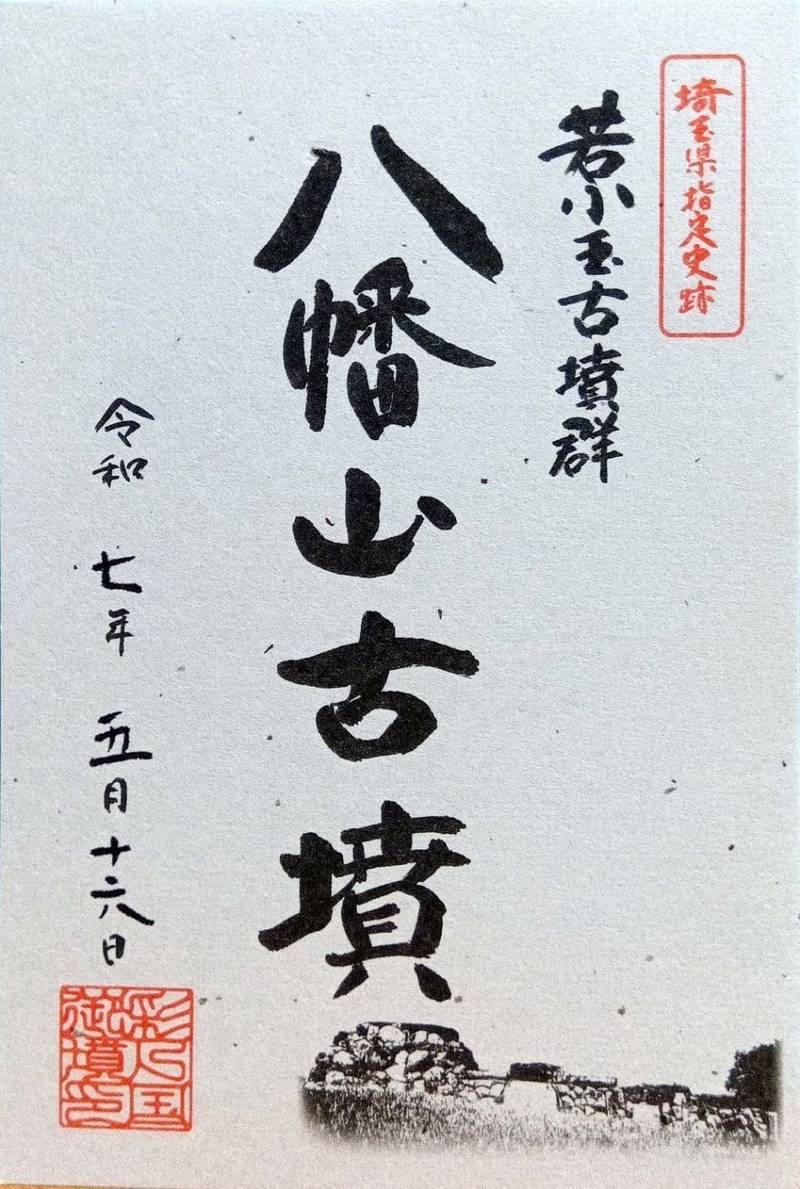 埼玉県指定史跡
若小玉古墳群
八幡山古墳
令和 七年 五月十六日
彩乃国
御墳印